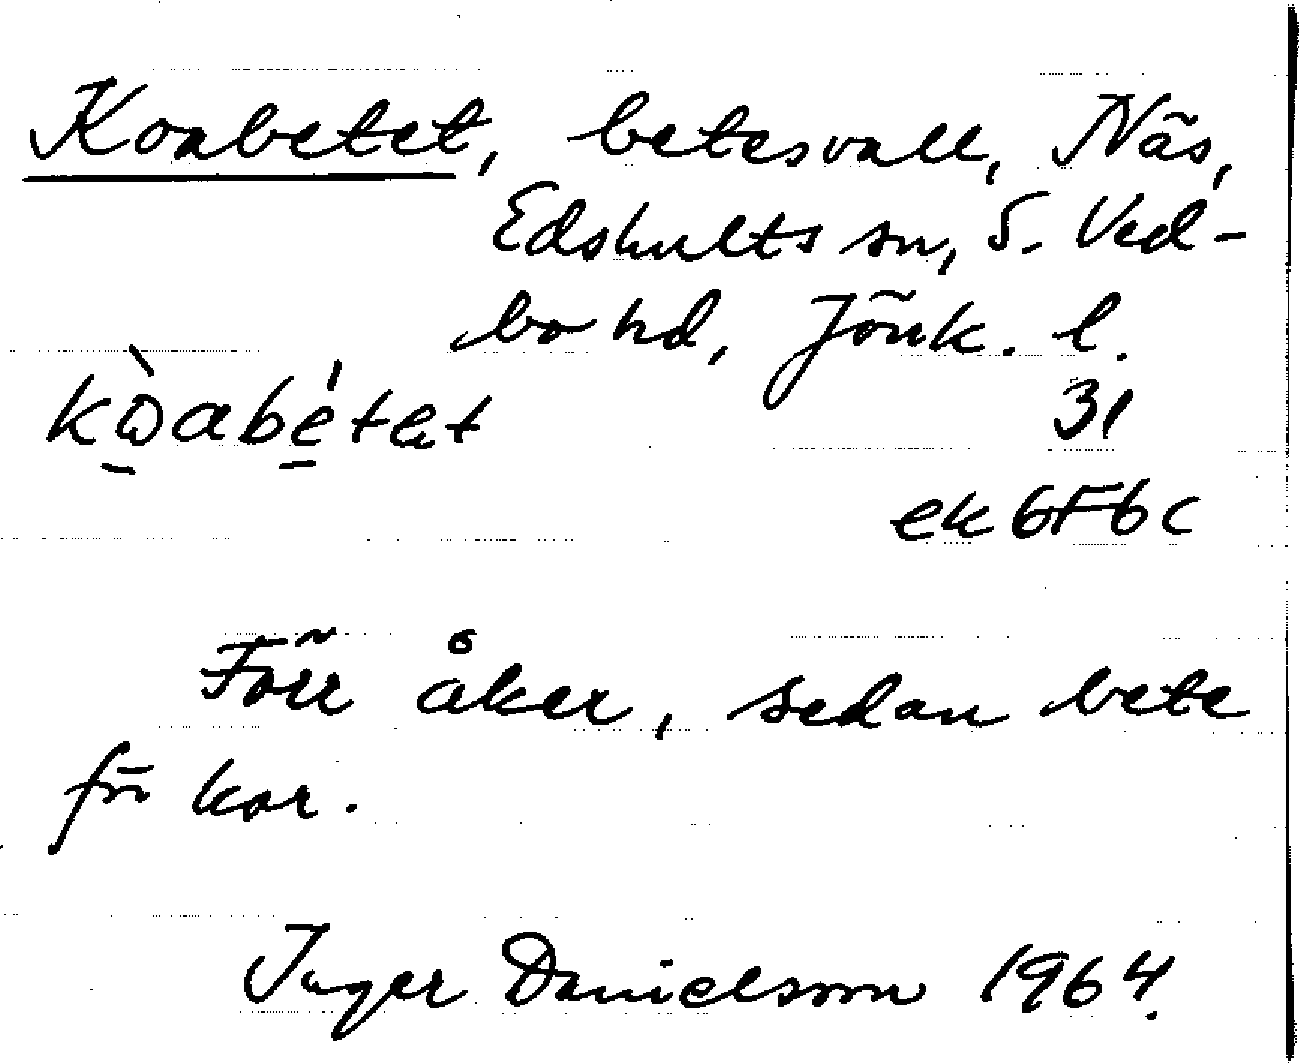 Koabetet, betesvall, Näs,
Edshults sn, S. Ved-
bo hd, Jönk. l.
kòabétet
31
ek 6F6c
Förr åker, sedan bete
för kor.
Inger Danielsson 1964.